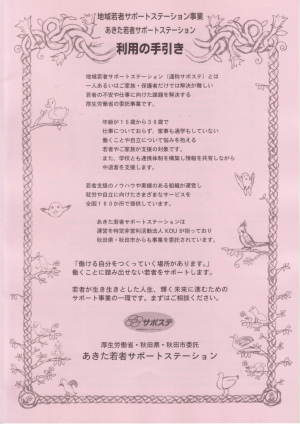 地域若者サポートステーション事業
あきた若者サポートステーション
利用の手引き
地域若者サポートステーション（通称サポステ）とは
一人あるいはご家族・保護者だけでは解決が難しい
若者の不安や仕事に向けた課題を解決する
厚生労働省の委託事業です。
年齢が１５歳から３９歳で
仕事についておらず、家事も通学もしていない
働くことや自立について悩みを抱える
若者やご家族が支援の対象です。
また、学校とも連携体制を構築し情報を共有しながら
中退者を支援します。
若者支援のノウハウや実績のある組織が運営し
就労や自立に向けたさまざまなサービスを
全国１６０か所で提供しています。
あきた若者サポートステーションは
運営を特定非営利活動法人ＫＯＵが担っており
秋田県・秋田市からも事業を委託されています。
「働ける自分をつくっていく場所があります。」
働くことに踏み出せない若者をサポートします。
若者が生き生きとした人生、輝く未来に進むための
サポート事業の一環です。まずはご相談ください。
サポステ
厚生労働省・秋田県・秋田市委託
あきた若者サポートステーション